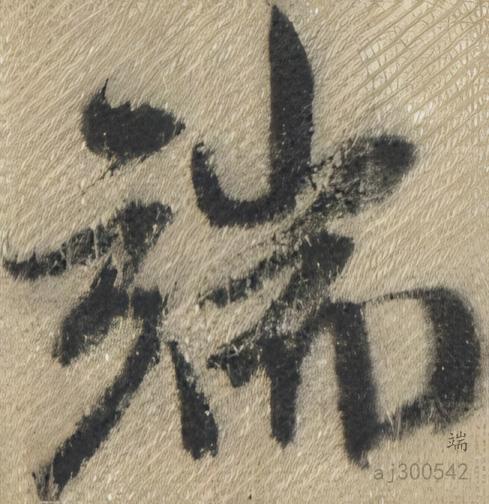 端
端
aj300542